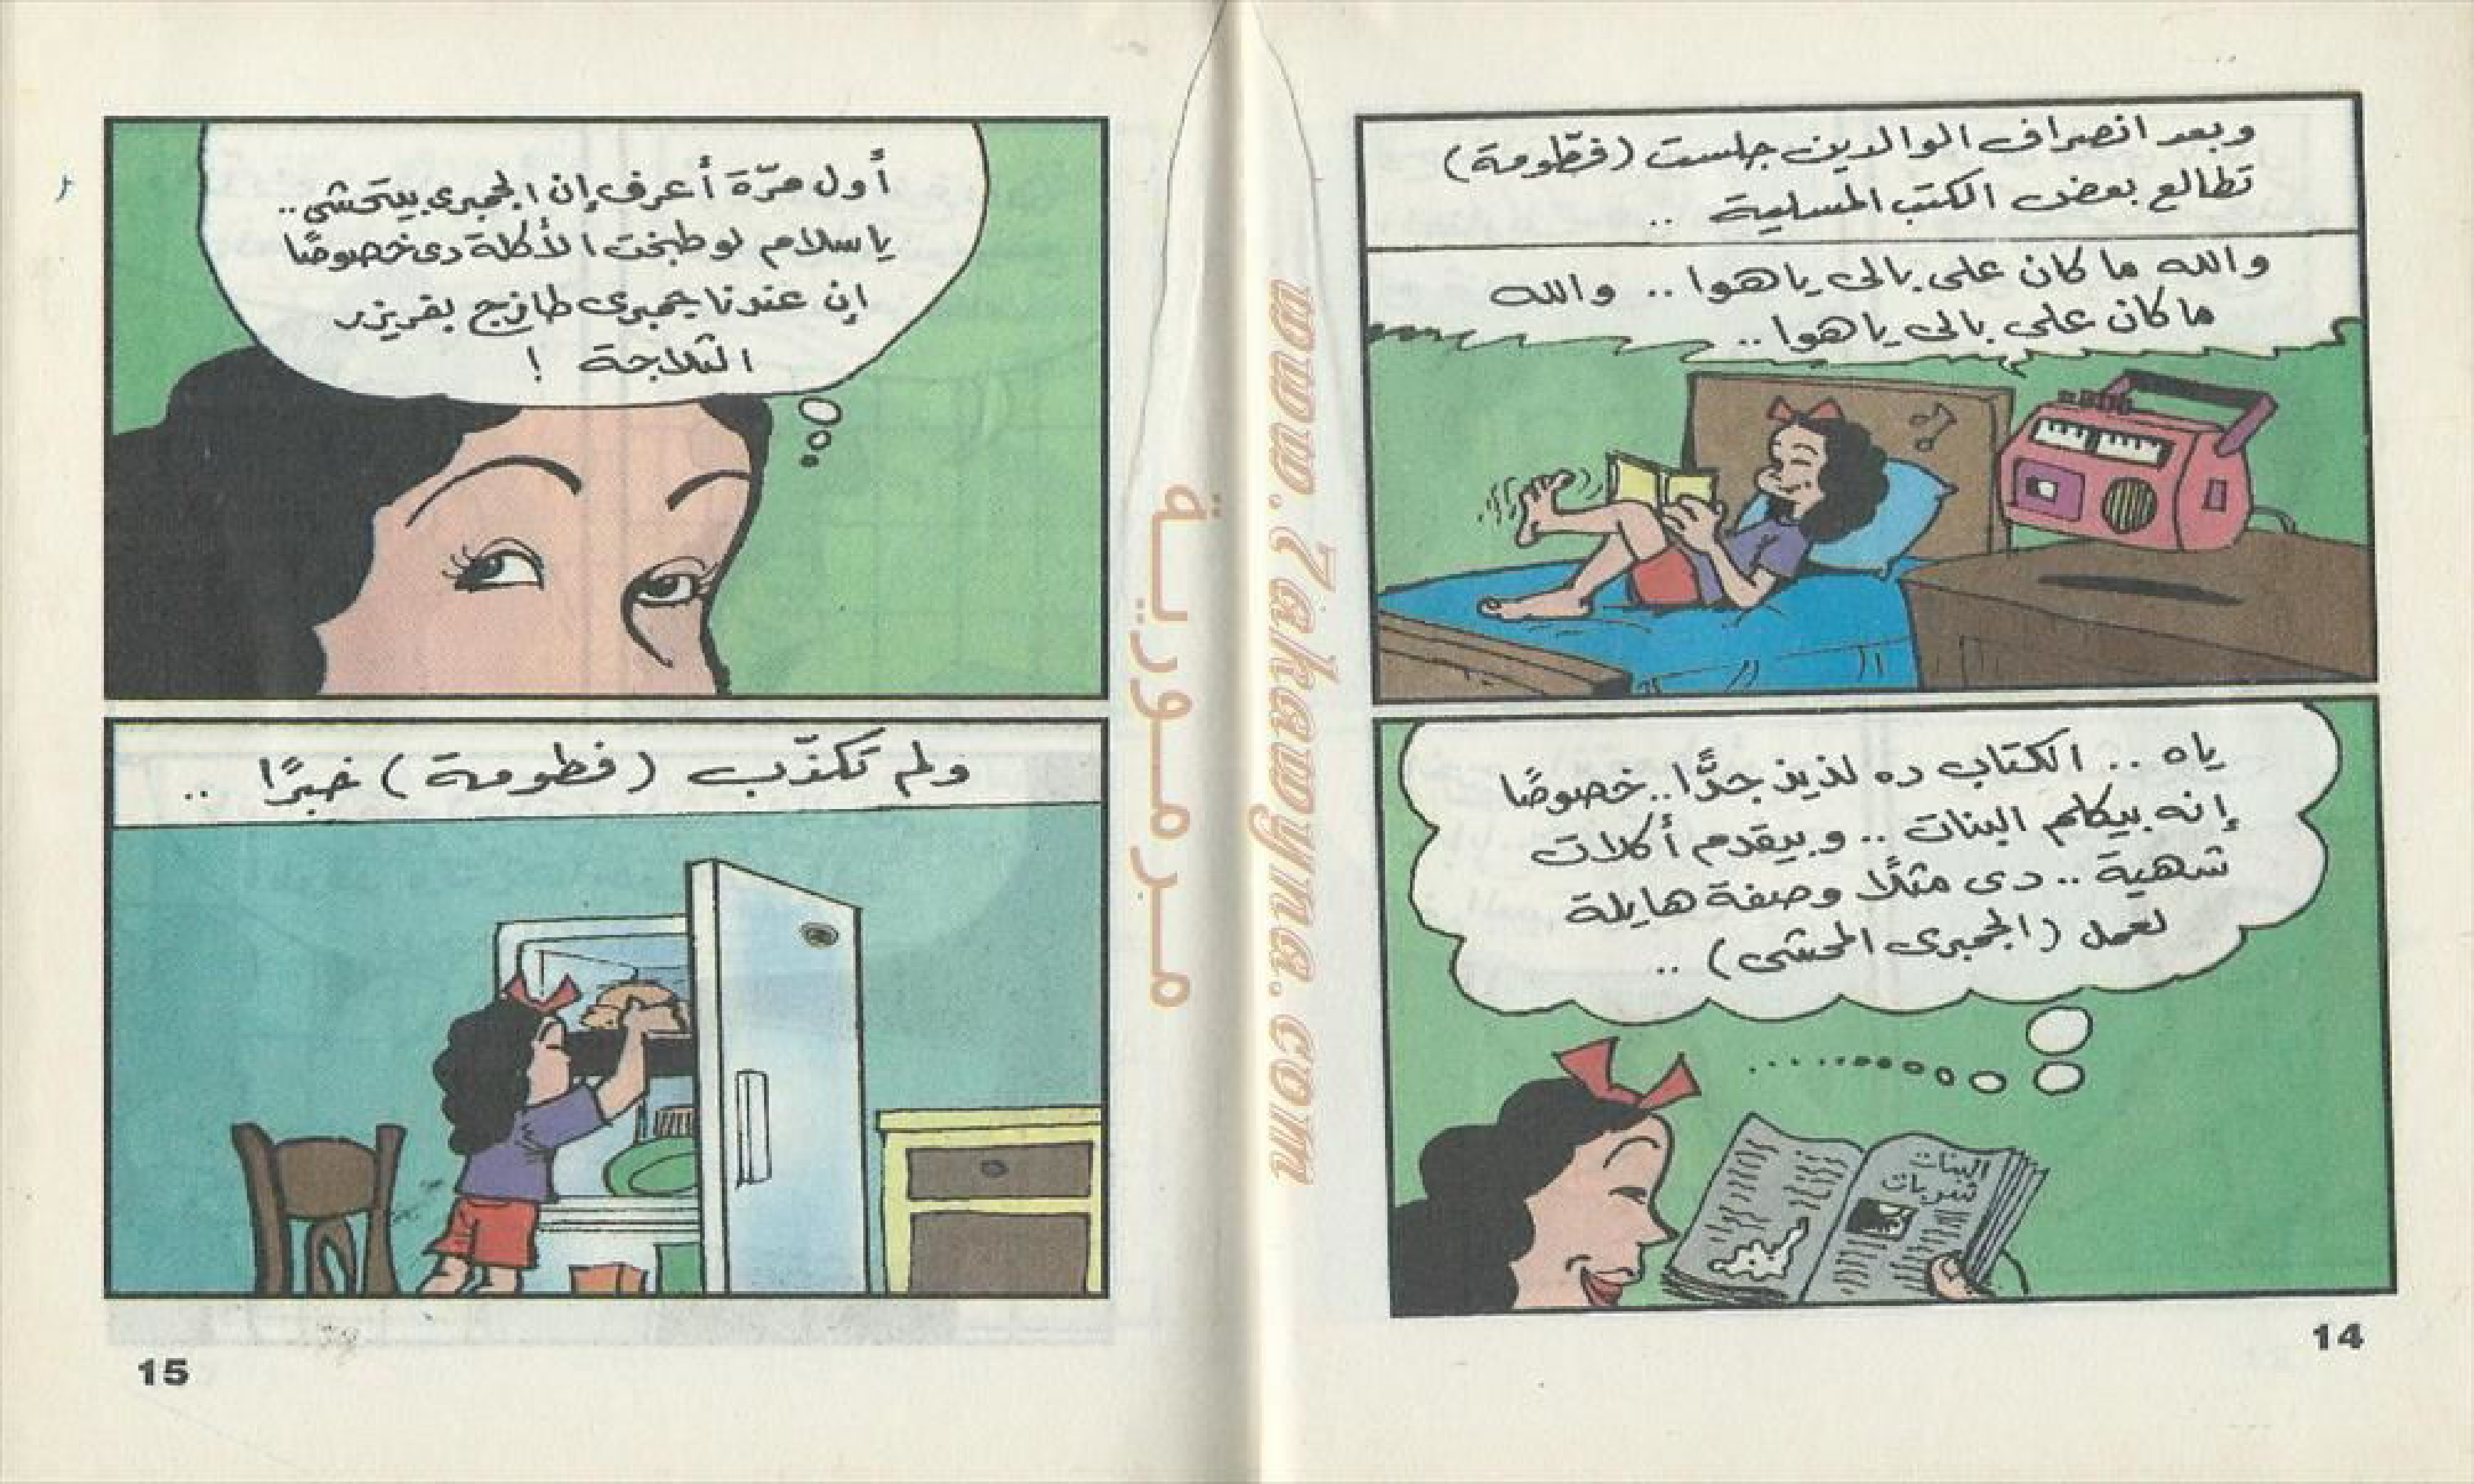 وبعد انصراف الوالدين جلست (فطّومة)
تطالع بعض الكتب المسلية ..
والله ما كان على بالى ياهوا .. والله
ما كان على بالى ياهوا ..
ياه .. الكتاب ده لذيذ جدًّا .. خصوصًا
إنه بيكلم البنات .. وبيقدم أكلات
شهية .. دى مثلًا وصفة هايلة
لعمل (الجمبرى المحشى) ..
البنات
شربات
14
أول مرّة أعرف إن الجمبرى بيتحشى ..
ياسلام لو طبخت الأكلة دى خصوصًا
إن عندنا جمبرى طازج بفريزر
الثلاجة !
ولم تكذّب (فطومة) خبرًا ..
15
مرمورية
www.Zakawyna.com